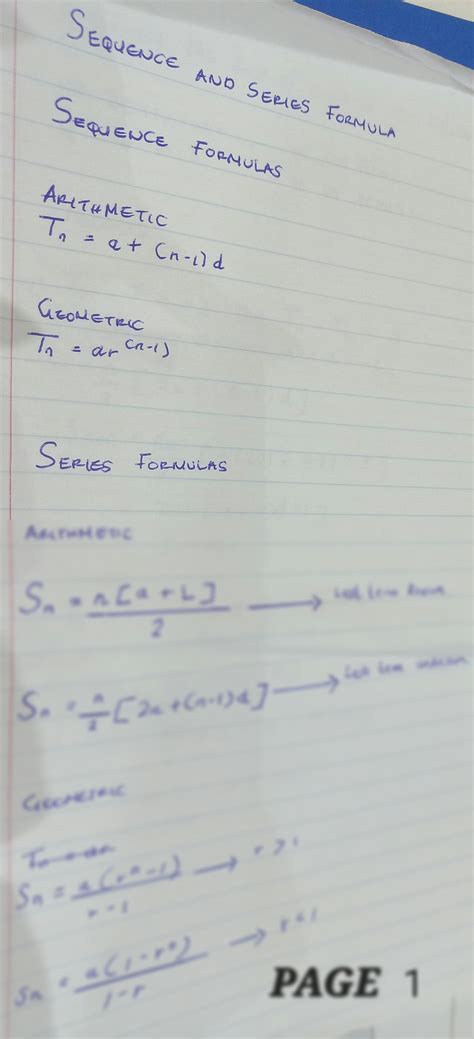 SEQUENCE AND SERIES FORMULA
SEQUENCE FORMULAS
ARITHMETIC
Tn = a + (n-1)d
GEOMETRIC
Tn = ar^(n-1)
SERIES FORMULAS
ARITHMETIC
Sn = n[a+L]/2 → Last term known
Sn = n/2 [2a+(n-1)d] → Last term unknown
GEOMETRIC
Sn = a(r^n-1)/r-1 → r>1
Sn = a(1-r^n)/1-r → r<1
PAGE 1